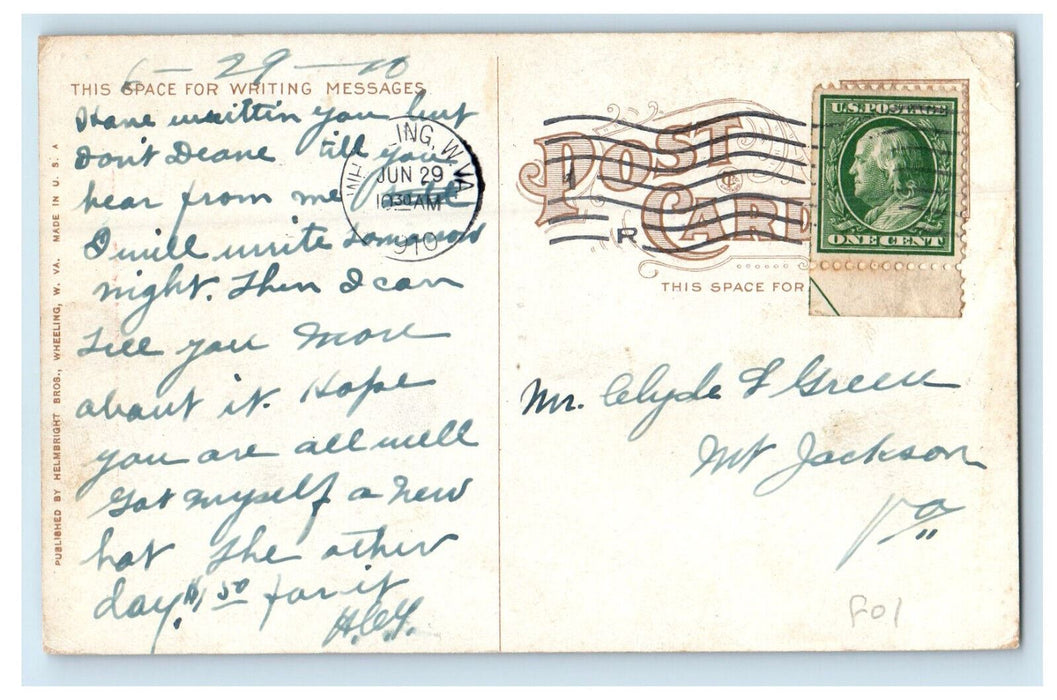 6-29-10
THIS SPACE FOR WRITING MESSAGES
Have writtin you but
don't Deane till you
hear from me
I will write tomorrow
night. Then I can
Tell you More
about it. Hope
you are all well
Got myself a New
hat The other
day, $1.50 for it
H.C.G.
PUBLISHED BY HELMBRIGHT BROS., WHEELING, W. VA. MADE IN U. S. A
WHEELING, W. VA.
JUN 29
10 30 AM
1910
POST CARD
1
R
THIS SPACE FOR
U.S. POSTAGE
ONE CENT
Mr. Clyde F Green
Mt Jackson
Va
F01